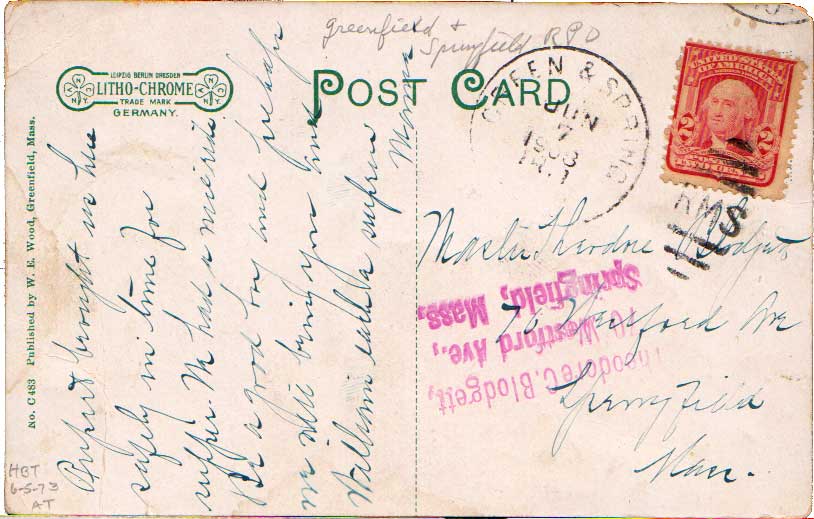 Greenfield &
Springfield RPO
LEIPZIG BERLIN DRESDEN
LITHO-CHROME
TRADE MARK
GERMANY.
N Y
N Y
POST CARD
GREEN & SPRING
JUN
7
1908
RMS
UNITED STATES
OF AMERICA
2 2
No. C483 Published by W. E. Wood, Greenfield, Mass.
brought us here
safely in time for
supper. We had a nice ride.
Be a good boy and perhaps
we will bring you and
William each a surprise
Mama
Master Theodore Blodgett
76 Westford Ave
Springfield
Mass.
Theodore C. Blodgett,
76 Westford Ave.,
Springfield, Mass.
HBT
6-5-73
AT